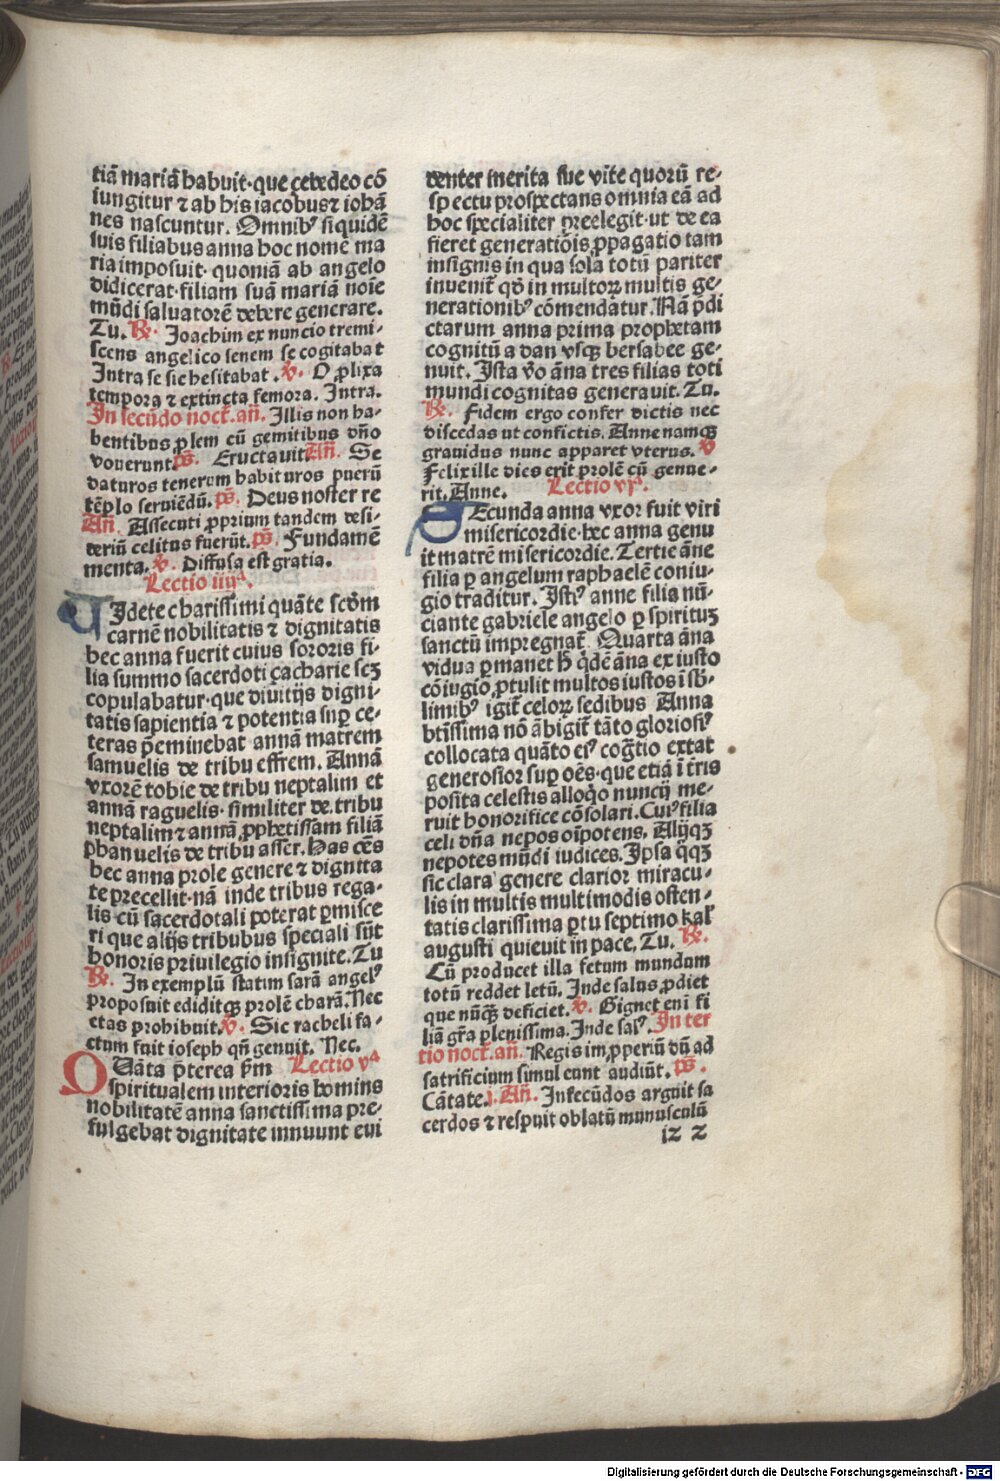 tiā mariā habuit· que çebedeo cō
iungitur ⁊ ab his iacobus⁊ iohā
nes nascuntur. Omnibꝰ siquidē
suis filiabus anna hoc nomē ma
ria imposuit· quoniā ab angelo
didicerat·filiam suā mariā noīe
mūdi saluatorē debere generare.
Tu. ℞. Joachim ex nuncio tremi-
scens angelico senem se cogitabat
Intra se sic hesitabat. ℣. O ꝓlixa
tempora ⁊ extincta femora. Intra.
In secūdo noct̄. añ. Illis non ha-
bentibus ꝓlem cū gemitibus dn̄o
vouerunt. p̄s. Eructauit Añ. Se
daturos tenerum habituros puerū
tēplo seruiēdū. p̄s. Deus noster re
Añ. Assecuti ꝓprium tandem desi-
deriū celitus fuerūt. p̄s. Fundamē
menta. ℣. Diffusa est gratia.
Lectio iiijᵃ.
Uidete charissimi quāte scd̄m
carnē nobilitatis ⁊ dignitatis
hec anna fuerit cuius sororis fi-
lia summo sacerdoti çacharie scꝫ
copulabatur· que diuitijs digni-
tatis sapientia ⁊ potentia suꝑ ce-
teras p̄eminebat annā matrem
samuelis de tribu effrem. Annā
vxorē tobie de tribu neptalim et
annā raguelis· similiter de tribu
neptalim ⁊ annā ꝓphetissam filiā
phanuelis de tribu asser. Has oēs
hec anna prole genere ⁊ dignita
te precellit· nā inde tribus rega-
lis cū sacerdotali poterat ꝑmisce
ri que alijs tribubus speciali sūt
honoris priuilegio insignite. Tu
℞. In exemplū statim sarā angelꝰ
proposuit ediditqꝫ prolē charā. Nec
etas prohibuit. ℣. Sic racheli fa-
ctum fuit ioseph qn̄ genuit. Nec.
QUāta p̄terea ꝑm Lectio vᵃ
spiritualem interioris hominis
nobilitatē anna sanctissima pre-
fulgebat dignitate innuunt eui
denter merita sue vite quorū re-
spectu prospectans omnia eā ad
hoc specialiter preelegit· ut de ea
fieret generatiōis ꝓpagatio tam
insignis in qua sola totū pariter
inuenit̄ qd̄ in multoꝝ multis ge-
nerationibꝰ cōmendatur. Nā p̄di
ctarum anna prima prophetam
cognitū a dan vsqꝫ bersabee ge-
nuit. Ista v̄o āna tres filias toti
mundi cognitas generauit. Tu.
℞. Fidem ergo confer dictis nec
discedas ut confictis. Anne namqꝫ
grauidus nunc apparet vterus. ℣
Felix ille dies erit prolē cū genue-
rit. Anne. Lectio vjᵃ.
SEcunda anna vxor fuit viri
misericordie· hec anna genu
it matrē misericordie. Tertie āne
filia ꝑ angelum raphaelē coniu-
gio traditur. Istiꝰ anne filia nū-
ciante gabriele angelo ꝑ spirituꝫ
sanctū impregnat̄. Quarta āna
vidua ꝑmanet h̄ q̇dē āna ex iusto
cōiugio ꝓtulit multos iustos ī sb̄-
limibꝰ igit̄ celoꝝ sedibus Anna
btīssima nō ābigit̄ tāto gloriosiꝰ
collocata quāto eiꝰ cog̅tio extat
generosior suꝑ oēs· que etiā ī t̄ris
posita celestis alloq̇o nuncij me-
ruit honorifice cōsolari. Cuiꝰ filia
celi dn̄a nepos oīpotens. Alijqꝫ
nepotes mūdi iudices. Ipsa q̇qꝫ
sic clara genere clarior miracu-
lis in multis multimodis osten-
tatis clarissima ꝑtu septimo kal̄
augusti quieuit in pace. Tu. ℞.
Cū producet illa fetum mundum
totū reddet letū. Inde salus ꝓdiet
que nūqꝫ deficiet. ℣. Gignet eni fi
liā gr̄a plenissima. Inde salꝰ. In ter
tio noct̄. añ. Regis imꝓperiū dū ad
satrificium simul eunt audiūt. p̄s.
Cātate. j. Añ. Infecūdos arguit sa
cerdos ⁊ respuit oblatū munusculū
iz z
Digitalisierung gefördert durch die Deutsche Forschungsgemeinschaft - DFG